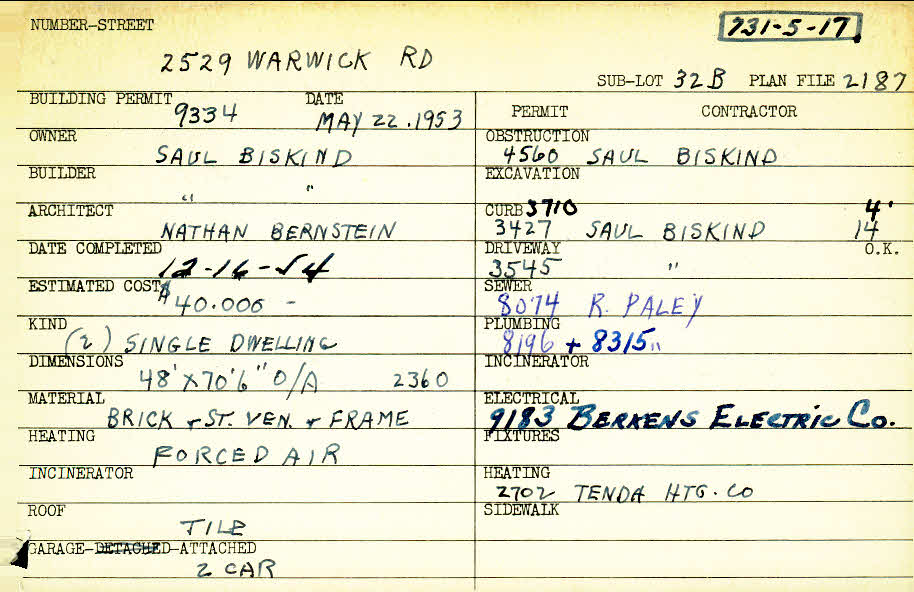 NUMBER-STREET
731-5-17
2529 WARWICK RD
SUB-LOT 32B PLAN FILE 2187
BUILDING PERMIT 9334 DATE MAY 22.1953
OWNER
SAUL BISKIND
BUILDER
" "
ARCHITECT
NATHAN BERNSTEIN
DATE COMPLETED
12-16-54
ESTIMATED COST
$40.000 -
KIND
(2) SINGLE DWELLING
DIMENSIONS
48'X70'6" O/A 2360
MATERIAL
BRICK + ST. VEN. + FRAME
HEATING
FORCED AIR
INCINERATOR
ROOF
TILE
GARAGE-DETACHED-ATTACHED
2 CAR
PERMIT CONTRACTOR
OBSTRUCTION
4560 SAUL BISKIND
EXCAVATION
CURB 3710 4'
3427 SAUL BISKIND 14
DRIVEWAY O.K.
3545 "
SEWER
8074 R. PALEY
PLUMBING
8196 + 8315 "
INCINERATOR
ELECTRICAL
9183 BERKENS ELECTRIC CO.
FIXTURES
HEATING
2702 TENDA HTG. CO
SIDEWALK